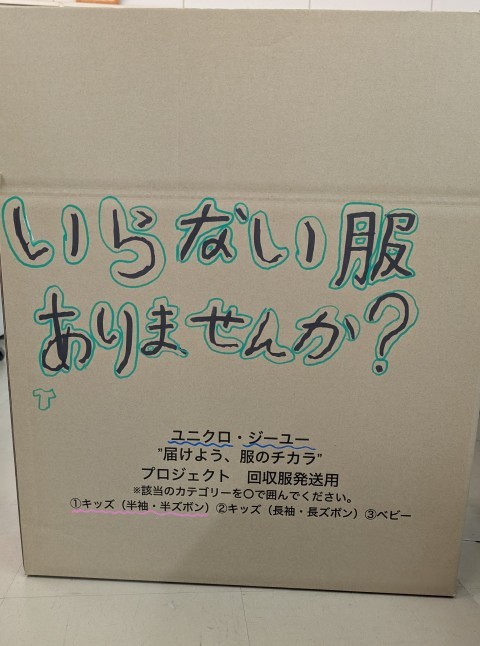 いらない服
ありませんか?
ユニクロ・ジーユー
"届けよう、服のチカラ"
プロジェクト 回収服発送用
※該当のカテゴリーを〇で囲んでください。
①キッズ（半袖・半ズボン）②キッズ（長袖・長ズボン）③ベビー